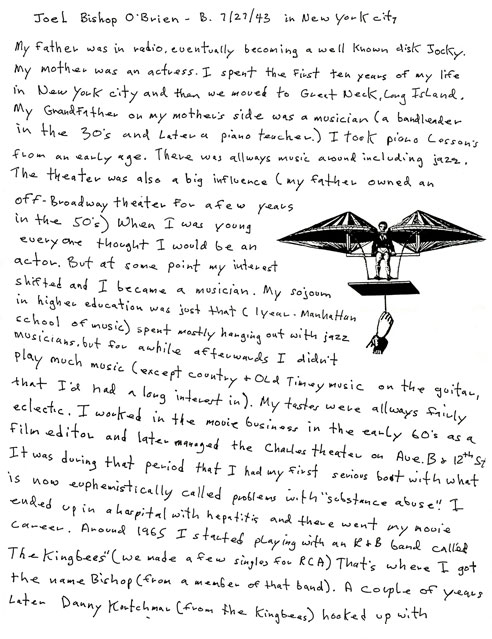 Joel Bishop O'Brien - B. 7/27/43 in New York city
My father was in radio, eventually becoming a well known disk Jocky.
My mother was an actress. I spent the first ten years of my life
in New York city and then we moved to Great Neck, Long Island.
My Grandfather on my mother's side was a musician (a bandleader
in the 30's and Later a piano teacher.) I took piano Lesson's
from an early age. There was allways music around including jazz.
The theater was also a big influence (my father owned an
off-Broadway theater for a few years
in the 50's) When I was young
everyone thought I would be an
actor. But at some point my interest
shifted and I became a musician. My sojourn
in higher education was just that (1 year - Manhattan
school of music) spent mostly hanging out with jazz
musicians, but for awhile afterwards I didn't
play much music (except country + Old Timey music on the guitar,
that I'd had a long interest in). My tastes were allways fairly
eclectic. I worked in the movie business in the early 60's as a
film editor and later managed the Charles theater on Ave. B & 12th St
It was during that period that I had my first serious bout with what
is now euphemistically called problems with "substance abuse". I
ended up in a hospital with hepatitis and there went my movie
career. Around 1965 I started playing with an R&B band called
The Kingbees" (we made a few singles for RCA) That's where I got
the name Bishop (from a member of that band). A couple of years
Later Danny Kortchmar (from the Kingbees) hooked up with